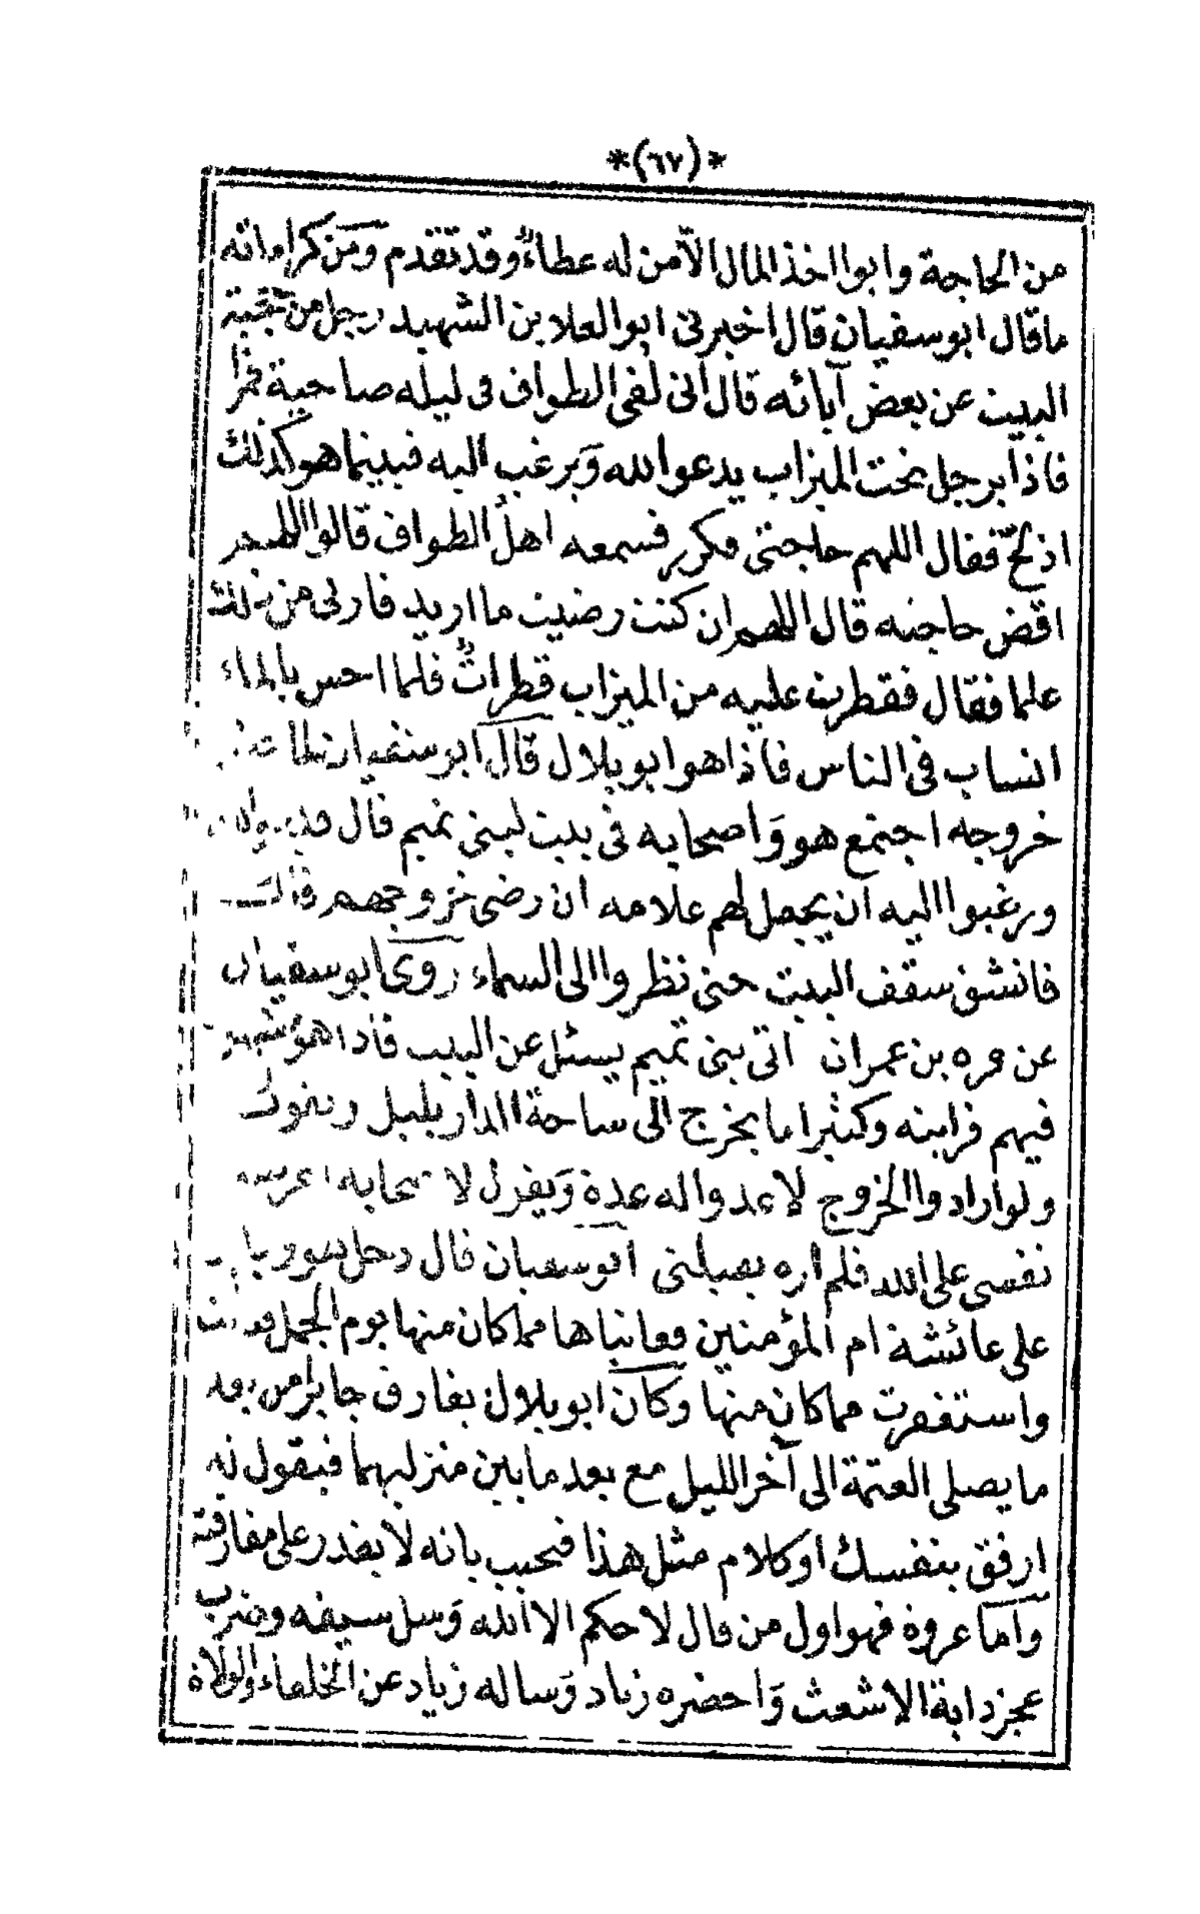 *(٦٧)*
من الحاجة وابوا اخذ المال الا من له عطاء وقد تقدم ومن كراماته
ما قال ابو سفيان قال اخبرني ابو العلا بن الشهيد رجل من
البيت عن بعض آبائه قال انى لفى الطواف فى ليله صاحية
فاذا برجل تحت الميزاب يدعوا الله ويرغب اليه فبينما هو كذلك
اذ فقال اللهم حاجتى فكرر فسمعه اهل الطواف قالوا اللهم
اقض حاجته قال اللهم ان كنت رضيت ما اريد فارنى من ذلك
علما فقال فقطرت عليه من الميزاب قطرات فلما احس بالماء
انساب فى الناس فاذا هو ابو بلال قال ابو سفيان
خروجه اجتمع هو واصحابه فى بيت لبنى تميم قال
ورغبوا اليه ان يجعل لهم علامه ان رضى خروجهم
فانشق سقف البيت حتى نظروا الى السماء روى ابو سفيان
عن مره بن عمران اتى بنى تميم يسئل عن البيت فاذا هو
فيهم قرابته وكثيرا ما يخرج الى ساحة الدار بليل
ولو ارادوا الخروج لاعدوا له عدة ويقول لا
نفسى على الله فلم اره ابو سفيان قال
على عائشة ام المؤمنين فعاتباها مما كان منها يوم الجمل
واستغفرت مما كان منها وكان ابو بلال يفارق جابرا من بعد
ما يصلى العتمة الى آخر الليل مع بعد ما بين منزليهما فيقول له
ارفق بنفسك او كلام مثل هذا فيجيب بانه لا يقدر على مفارقته
واما عروة فهو اول من قال لا حكم الا الله وسل سيفه وضرب
عجز دابة الاشعث واحضره زياد وساله زياد عن الخلفاء والولاة